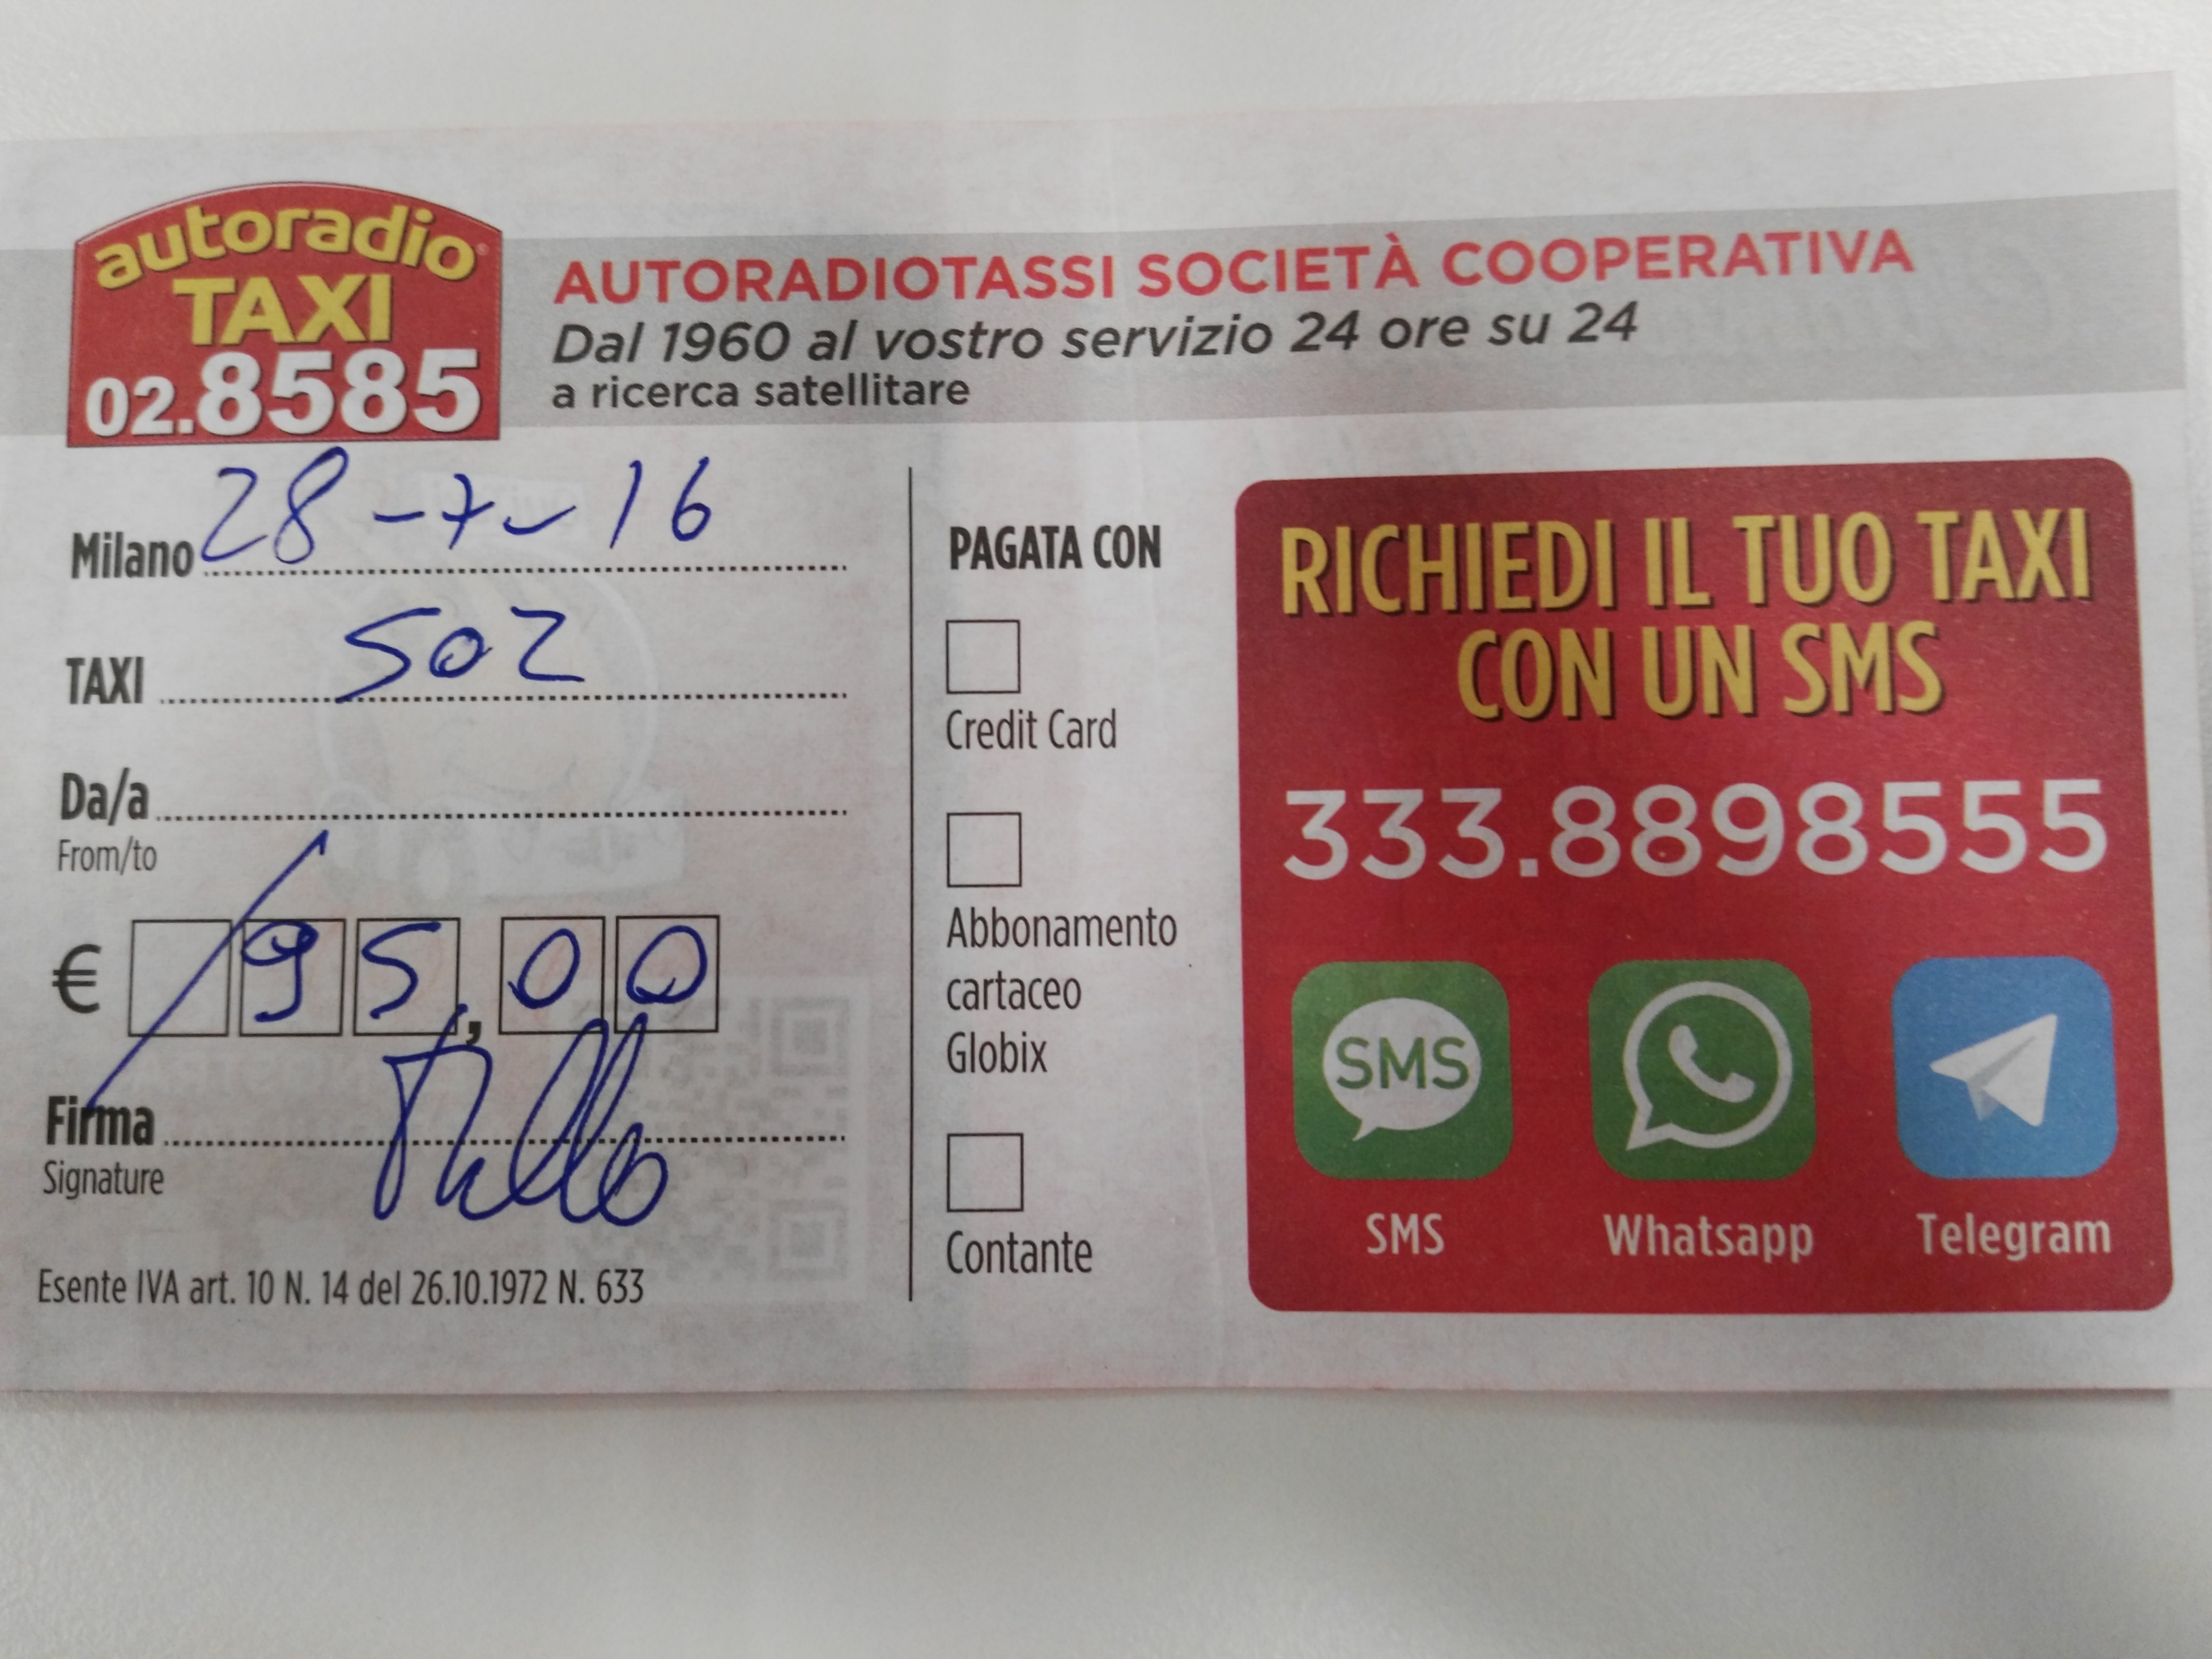 autoradio®
TAXI
02.8585
AUTORADIOTASSI SOCIETÀ COOPERATIVA
Dal 1960 al vostro servizio 24 ore su 24
a ricerca satellitare
Milano 28-7-16
TAXI 502
Da/a
From/to
€ 95,00
Firma
Signature
Esente IVA art. 10 N. 14 del 26.10.1972 N. 633
PAGATA CON
Credit Card
Abbonamento
cartaceo
Globix
Contante
RICHIEDI IL TUO TAXI
CON UN SMS
333.8898555
SMS
SMS
Whatsapp
Telegram